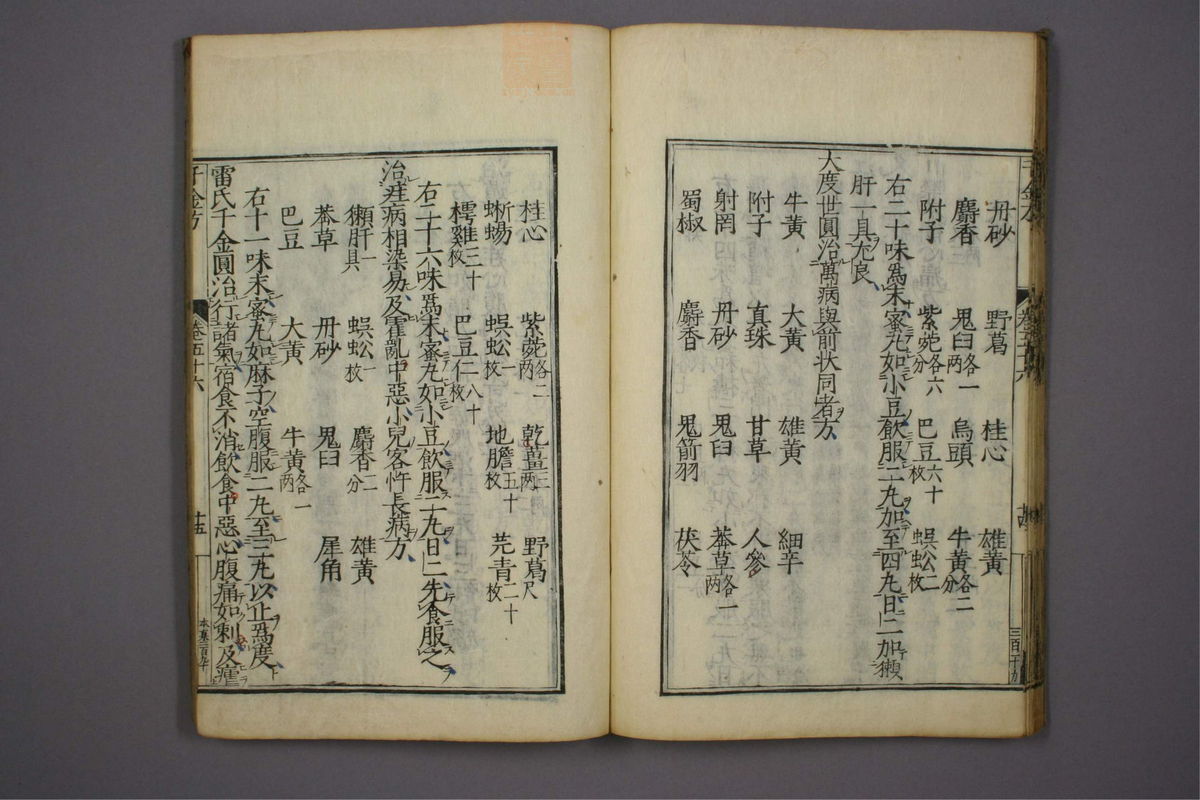 丹砂 野葛 桂心 雄黃
麝香 鬼臼各一两 烏頭 牛黃各二分
附子 紫菀各六分 巴豆六十枚 蜈蚣二枚
右二十味爲末蜜丸如小豆飲服二丸加至四丸日二加獺
肝一具尤良
大度世圓治萬病與前状同者方
牛黃 大黃 雄黃 細辛
附子 真珠 甘草 人參
射罔 丹砂 鬼臼 莽草各一两
蜀椒 麝香 鬼箭羽 茯苓
桂心 紫菀各二两 乾薑三两 野葛尺
蜥蜴 蜈蚣一枚 地膽五十枚 芫青二十枚
樗雞三十枚 巴豆仁八十枚
右二十六味爲末蜜丸如小豆飲服二丸日二先食服之
治疰病相染易及霍亂中惡小兒客忤長病方
獺肝一具 蜈蚣一枚 麝香二分 雄黃
莽草 丹砂 鬼臼 犀角
巴豆 大黃 牛黃各一两
右十一味末蜜丸如麻子空腹服二丸至三丸以止爲度
雷氏千金圓治行諸氣宿食不消飲食中惡心腹痛如刺及瘧
千金方 卷五十六 十五